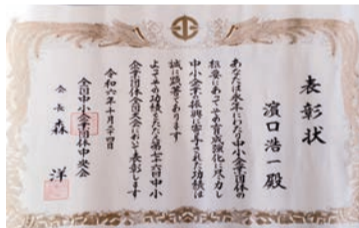 表彰状
濵口浩一殿
あなたは永年にわたり中小企業団体の
枢要にあってその育成強化に尽力し
中小企業の振興に寄与された功績は
誠に顕著であります
よってその功績をたたえ第七十六回中小
企業団体全国大会において表彰します
令和六年十月二十四日
全国中小企業団体中央会
会長 森 洋